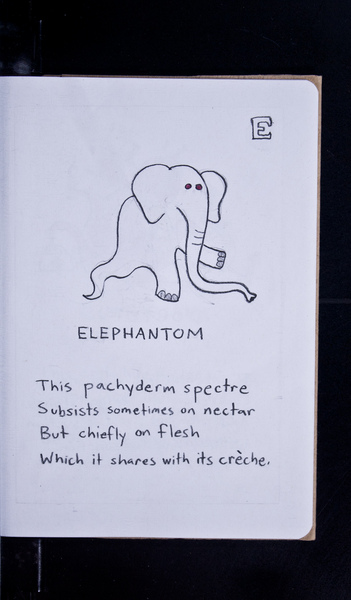 E
ELEPHANTOM
This pachyderm spectre
Subsists sometimes on nectar
But chiefly on flesh
Which it shares with its crèche.